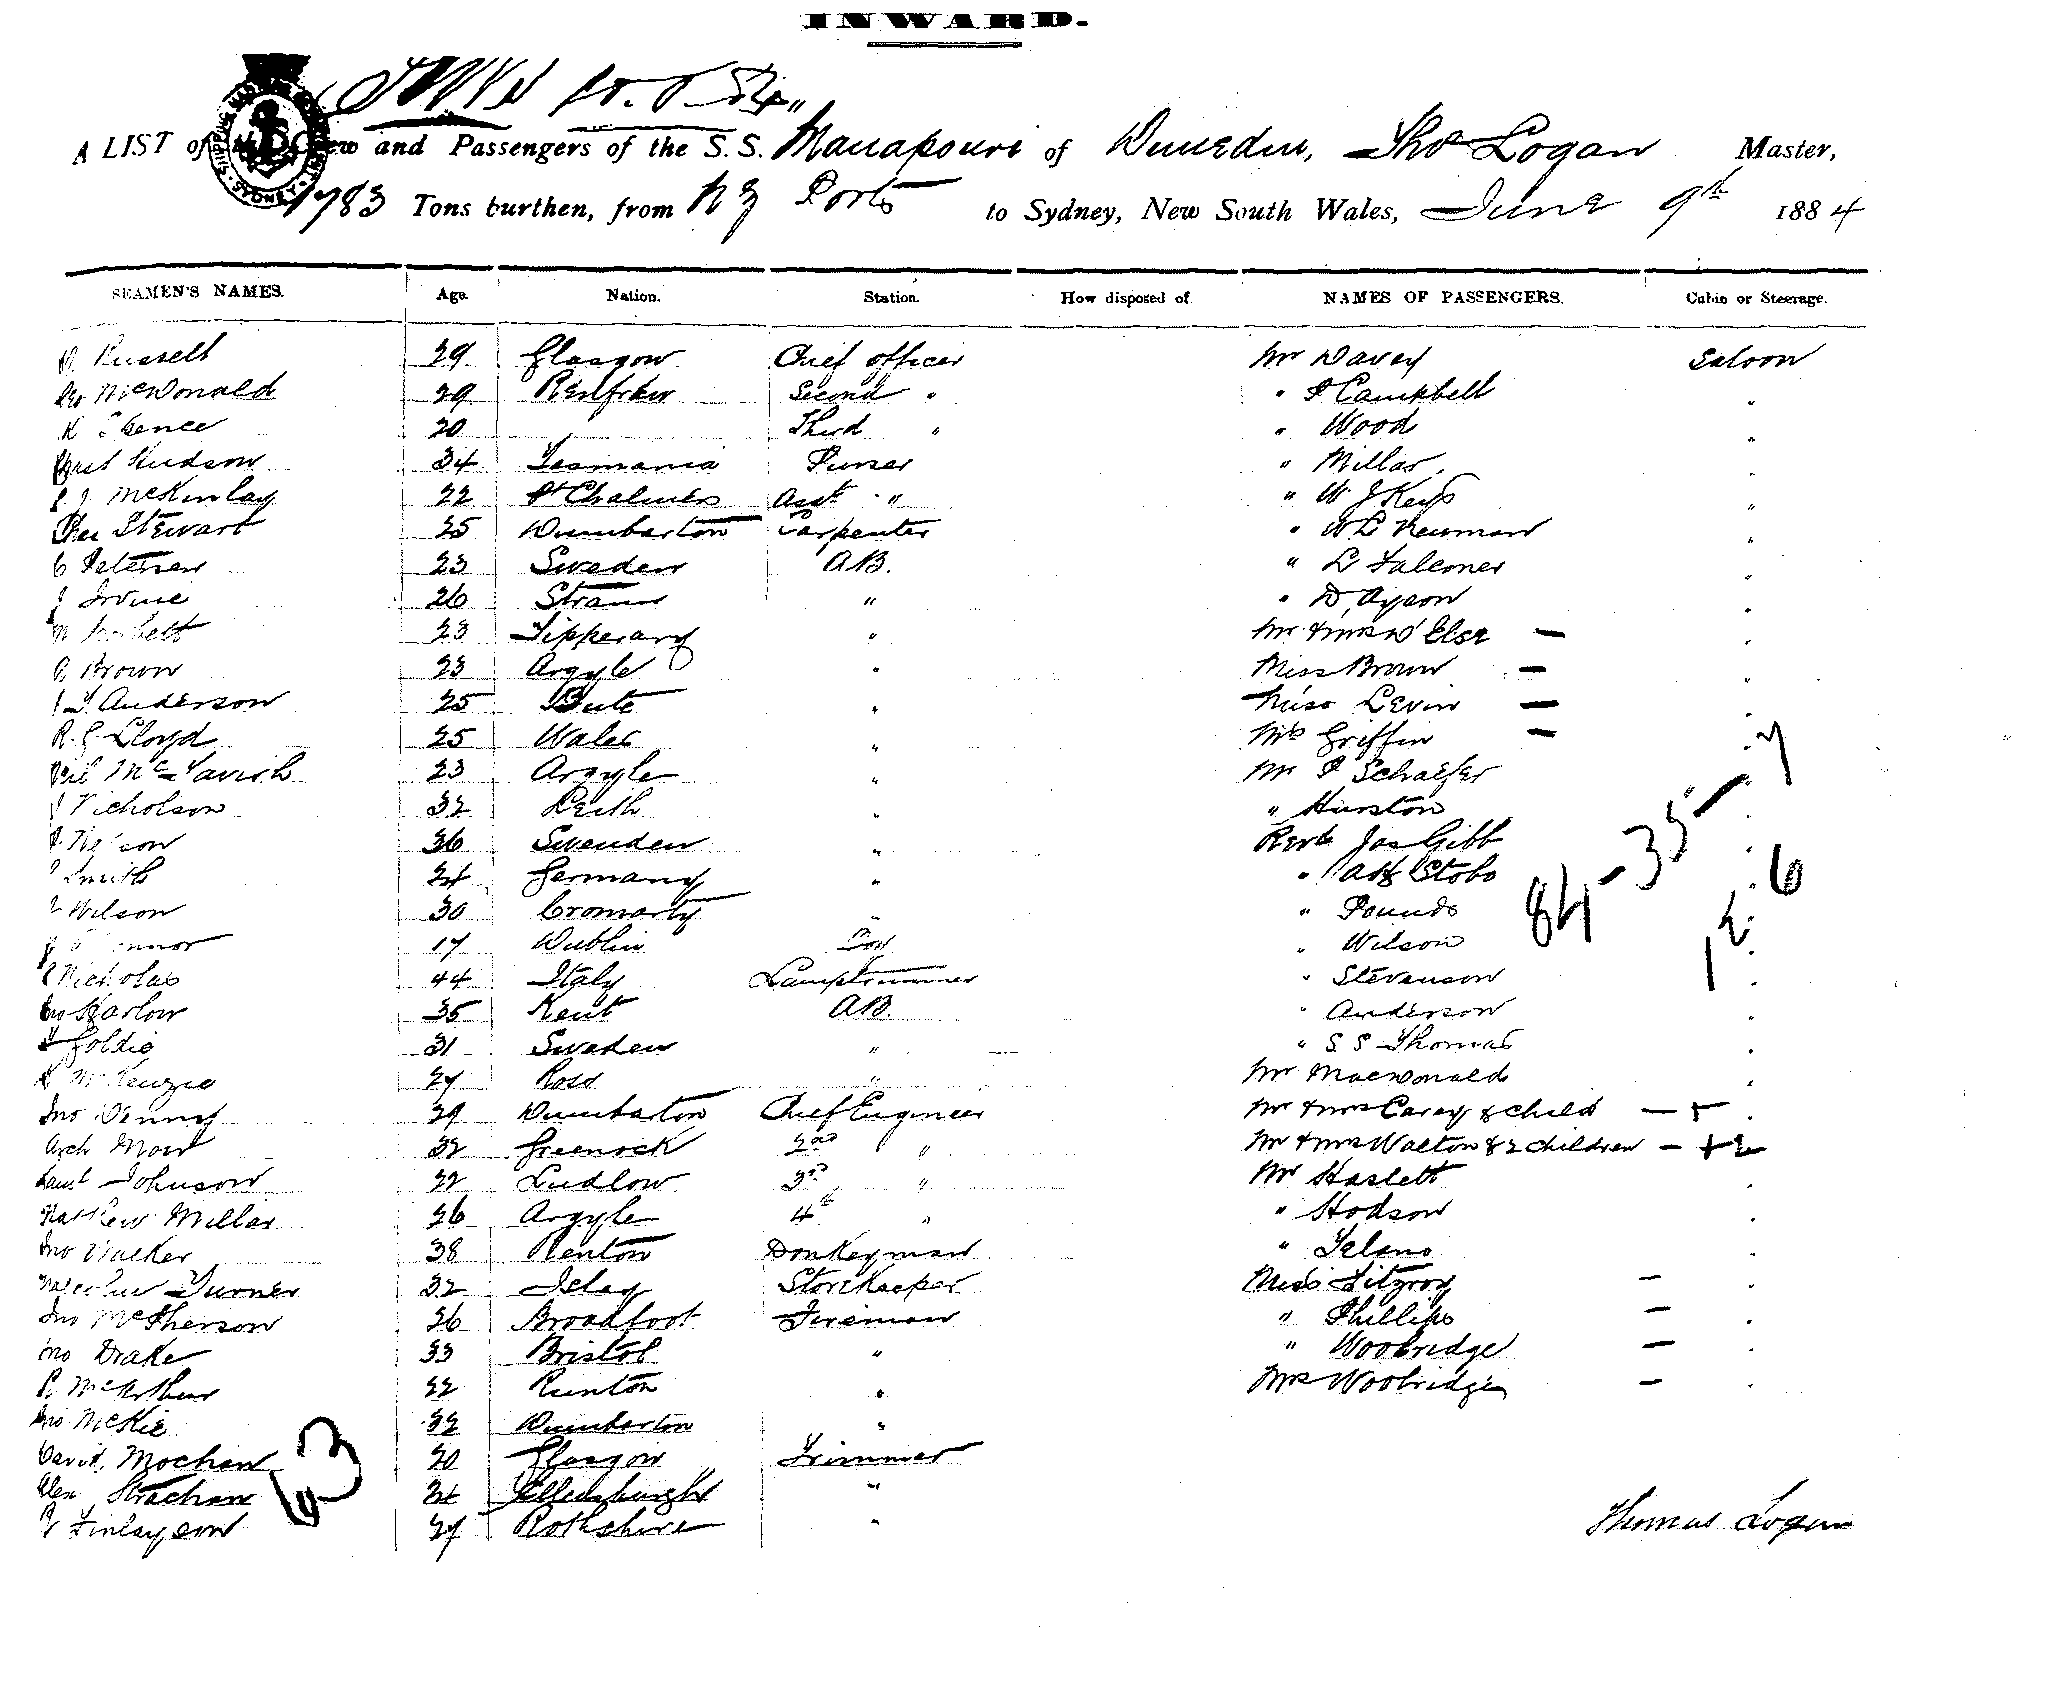 INWARD.
A LIST of the Crew and Passengers of the S.S. Manapouri of Dunedin, Thos Logan Master,
1783 Tons burthen, from N Z Ports to Sydney, New South Wales, June 9th 1884
SEAMEN'S NAMES. Age. Nation. Station. How disposed of. NAMES OF PASSENGERS. Cabin or Steerage.
Russell 29 Glasgow Chief officer Mr Davey Saloon
McDonald 29 Renfrew Second " " Campbell "
Spence 20 Third " " Wood "
Hudson 34 Tasmania Purser " Millar "
McKinlay 22 Pt Chalmers Asst " " W J Keys "
Stewart 25 Dumbarton Carpenter " W L Newman "
C Petersen 23 Sweden A.B. " L Falconer "
J Irvine 26 " " D Ayson "
23 Tipperary " Mr & Mrs W Else — "
Brown 23 Argyle " Miss Brown — "
J T Anderson 25 Bute " Miss Levin — "
R. G Lloyd 25 Wales " Mrs Griffin — "
Neil McTavish 23 Argyle " Mr P Schaefer "
J Nicholson 32 Leith " " Hurston "
Nelson 36 Sweeden " Revd Jas Gibb "
Smith 24 Germany " " Stobo "
Wilson 30 Cromarty " " Pounds "
17 Dublin Boy " Wilson "
Nicholas 44 Italy Lamptrimmer " Stevenson "
Jno Harlow 35 Kent A.B. " Anderson "
Goldie 31 Sweden " " S S Thomas "
McKenzie 27 Ross " Mr MacDonald "
Jno Denny 29 Dumbarton Chief Engineer Mr & Mrs Carey & child — + "
Arch Moir 32 Greenock 2nd " Mr & Mrs Walton & 2 children — + 2
Johnson 22 Ludlow 3rd " Mr Haslett "
Mathew Millar 26 Argyle 4th " " Hodson "
Jno Walker 38 Renton Donkeyman "
Malcolm Turner 32 Islay Storekeeper Miss Fitzroy — "
Jno McPherson 26 Broadfoot Fireman " Phillips — "
Jno Drake 33 Bristol " " Woolridge — "
R McArthur 22 Renton " Mrs Woolridge — "
Jno McKie 32 Dumbarton "
David Mochan 20 Glasgow Trimmer
Alex Strachan 24 "
Finlayson 27 "
84 - 35 - 7
12 6
43
Thomas Logan